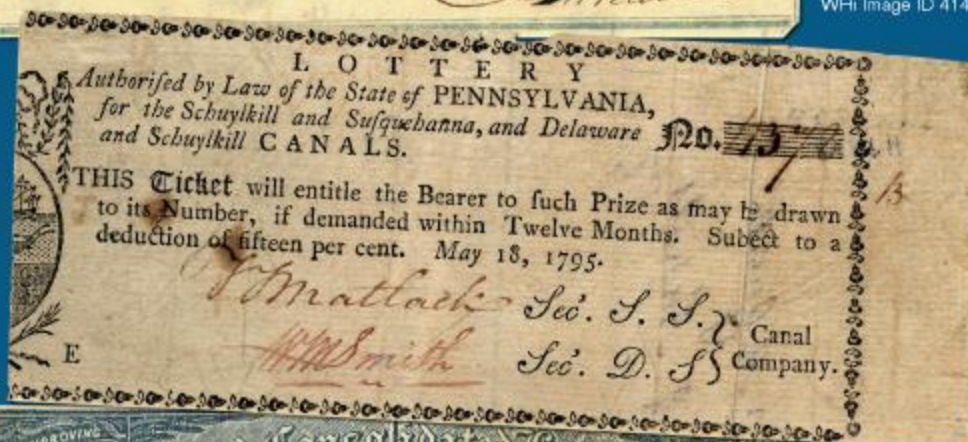 WHi Image ID 414
LOTTERY
Authoriſed by Law of the State of PENNSYLVANIA,
for the Schuylkill and Suſquehanna, and Delaware
and Schuylkill CANALS.
No.
13
THIS Ticket will entitle the Bearer to ſuch Prize as may be drawn
to its Number, if demanded within Twelve Months. Subect to a
deduction of fifteen per cent. May 18, 1795.
T Matlack Sec. S. S.
Wm Smith Sec. D. S
Canal
Company.
E
IMPROVING
Consolidated